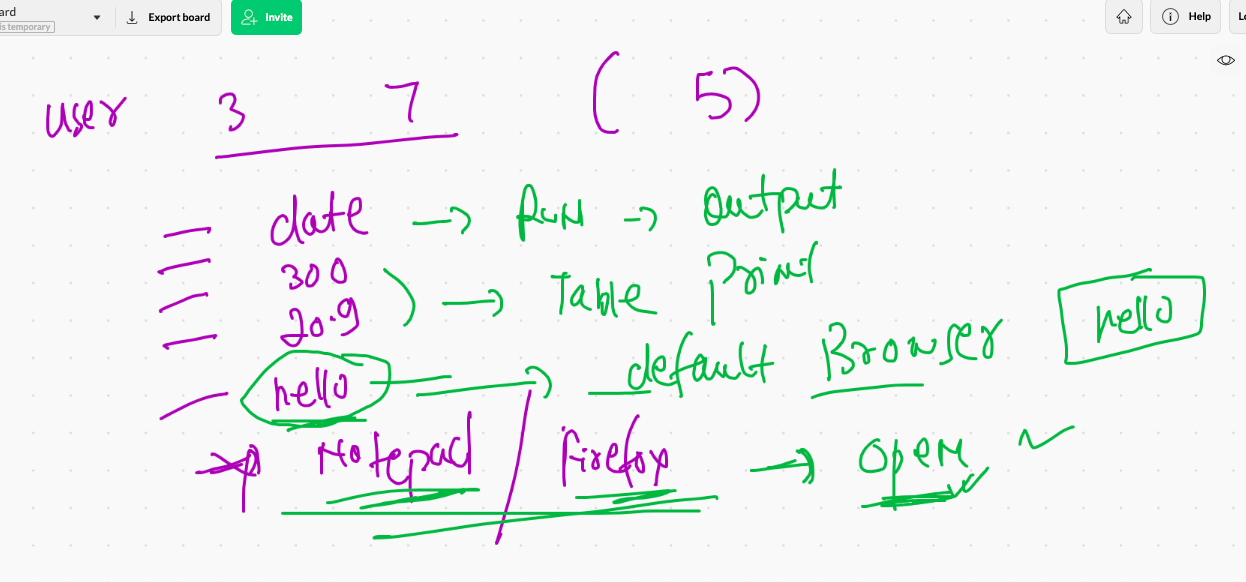 ard
is temporary
Export board
Invite
Help
Lo
user 3 7 ( 5)
date → Run → output
300
20.9 ) → Table print
hello → default Browser
hello
→ Notepad / firefox → open ✓